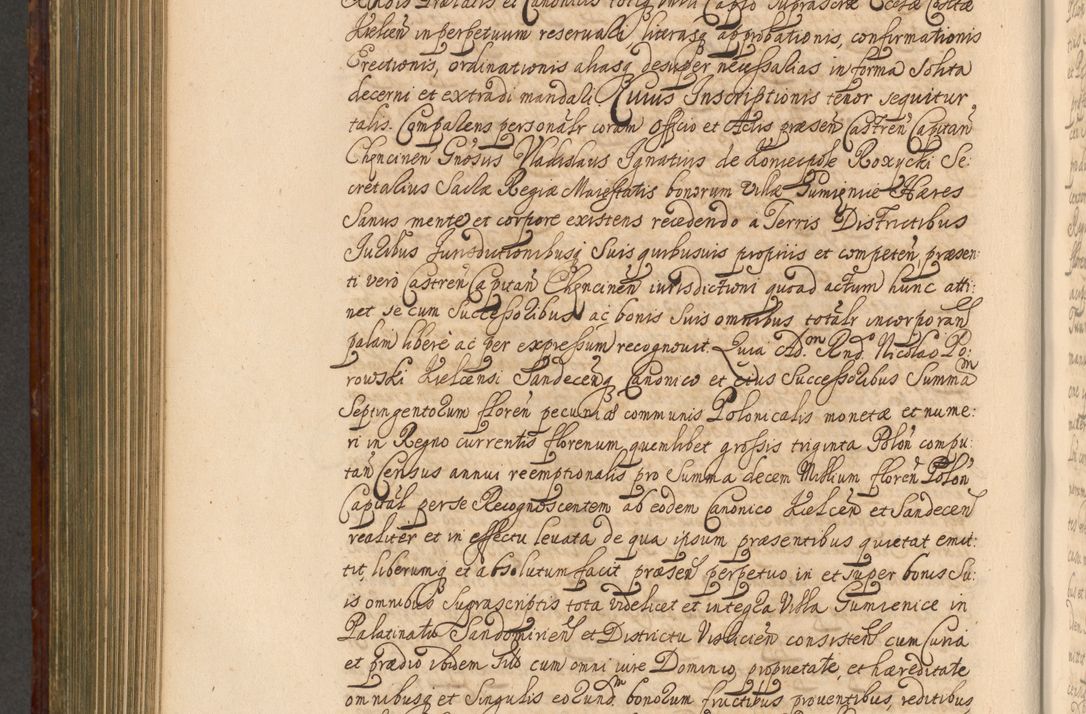 Kielcen̄ in perpetuum reservali, literasq approbationis, confirmationis
Erectionis, ordinationis aliasq desuper necessarias in forma solita
decerni et extradi mandari. Cuius Inscriptionis tenor sequitur
talis. Comparens personalr coram Officio et Actis præsen̄ Castren̄ Capitan̄
Chęncinen̄ Gn̄osus Vladislaus Ignatius de Koniecpole Roxycki Se:
cretarius Sacræ Regiæ Maiestatis bonorum Villæ Gumienice Hæres
Sanus mente et corpore existens recedendo a Terris Districtibus
Iudibus Iurisdictionibusq Suis quibusuis propriis et competen̄, præsen:
ti verò Castren̄ Capitan̄ Chęncinen̄ iurisdictioni quoad actum hunc atti:
net se cum Successoribus ac bonis Suis omnibus totalr incorporans
palam liberè ac per expressum recognouit. Quia Adm Rnd. Nicolao Po:
rowski Kielcensi Sandecenq Canonico et eius Successoribus Summam
Septingentorum floren̄ pecuniæ communis Polonicalis monetæ et nume:
ri in Regno currentis florenum quemlibet grossis triginta Polon̄ compu:
tan̄ Census annui reemptionalis pro Summa decem Millium floren̄ Polon̄
Capital perse Recognoscentem ab eodem Canonico Kielcen̄ et Sandecen̄
realiter et in effectu leuata de qua ipsum præsentibus quietat emit:
tit, liberumq et absolutum facit præsen̄ perpetuo in et super bonis Su:
is omnibus Suprascriptis tota videlicet et integra Villa Gumienice in
Palatinatu Sandomirien̄ et Districtu Vislicien̄ consisten̄ cum Curia
et prædio ibidem Sito cum omni iure Dominio, proprietate, et hæreditate
omnibusq et Singulis eorundm bonorum fructibus prouentibus, reditibus